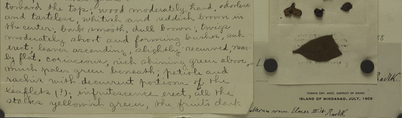 toward the top, wood moderately hard, odorless
and tasteless, whitish and reddish brown in
the center, bark smooth, dull brown, twigs
moderately short and forming bushes, sub-
erect; leaves ascending, slightly recurved, nearly
flat, coriaceous, rich shining green above,
much paler green beneath, petiole and
rachis with decurrent portions of the
leaflets (?), infrutescence erect, all the
stalks yellowish green, the fruits dark
ISLAND OF MINDANAO, JULY, 1909